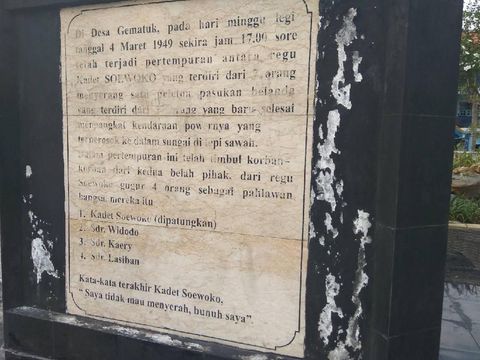 Di Desa Gematuk, pada hari minggu legi
tanggal 4 Maret 1949 sekira jam 17.00 sore
telah terjadi pertempuran antara regu
Kadet SOEWOKO yang terdiri dari orang
menyerang satu peleton pasukan belanda
yang terdiri dari orang yang baru selesai
mengangkat kendaraan power nya yang
terperosok ke dalam sungai di tepi sawah.
Dalam pertempuran ini telah timbul korban-
korban dari kedua belah pihak, dari regu
Soewoko gugur 4 orang sebagai pahlawan
bangsa, mereka itu
1. Kadet Soewoko (dipatungkan)
2. Sdr. Widodo
3. Sdr. Kaery
4. Sdr. Lasiban
Kata-kata terakhir Kadet Soewoko,
" Saya tidak mau menyerah, bunuh saya"